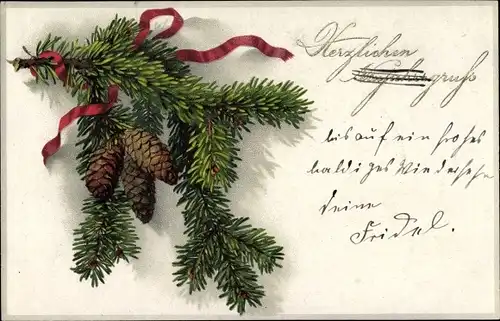 Herzlichen
Neujahrsgruß
bis auf ein frohes
baldiges Wiedersehn
deine
Fridel.